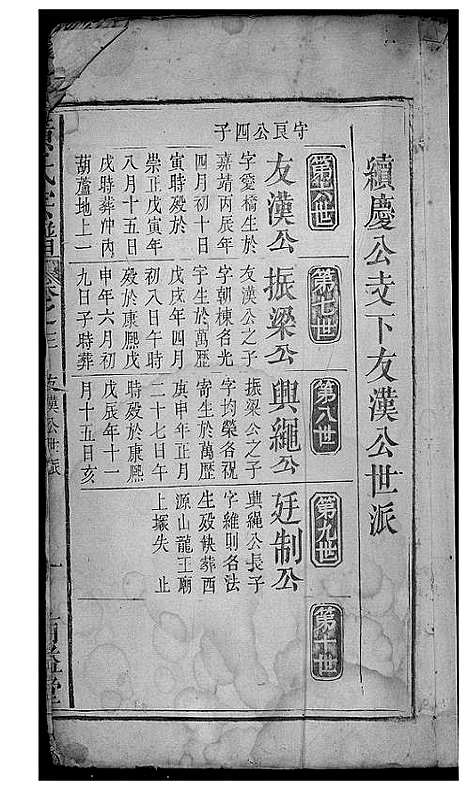 續慶公支下友漢公世派
第六世
第七世
第八世
第九世
第十世
守良公四子
友漢公
字愛橋生於
嘉靖丙辰年
四月初十日
寅時殁於
崇正戊寅年
八月十五日
戌時葬冲內
葫蘆地上一
振梁公
友漢公之子
字朝棟名光
宇生於萬歷
戊戌年四月
初八日午時
殁於康熙戊
申年六月初
九日子時葬
興繩公
振梁公之子
字均榮各祝
寄生於萬歷
庚申年正月
二十七日午
時殁於康熙
戊辰年十一
月十五日亥
廷制公
興繩公長子
字維則名法
生殁缺葬西
源山龍王廟
上塚失止
卷之三
友漢公世派
一